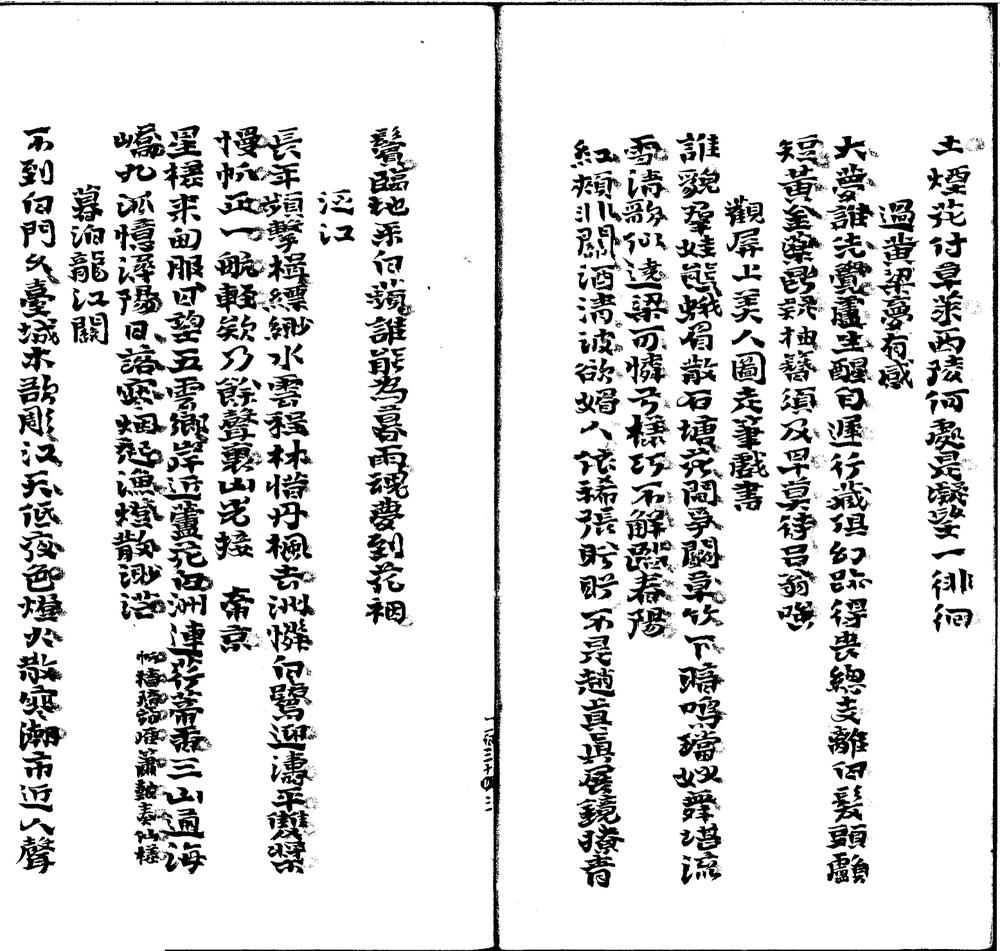 土煙花付草萊西陵何處是凝望一徘徊
過黄粱夢有感
大夢誰先覺盧生醒自遲行藏俱幻跡得喪總支離白髮頭顱
短黄金藥餌抽簪須及早莫待呂翁嗤
觀屏上美人圖走筆戲書
誰貌羣娃態蛾眉散石塘花間爭鬭草竹下暗鳴璫妙舞堪流
雪清歌似遶梁可憐兮樣巧不解踏春陽
紅頰非關酒清波欲媚人依稀張盼盼不是趙真真展鏡撩青
鬢臨地采白蘋誰能為暮雨魂夢到花裀
泛江
長年頻擊楫縹緲水雲程林惜丹楓去洲憐白鷺迎濤平雙槳
慢帆正一航輕欸乃餘聲裏山光接 帝京
星槎来甸服日望五雲鄉岸近蘆花白洲連荇帶香三山通海
嶠九派憶潯陽日落寒烟起漁燈散渺茫
暮泊龍江關
不到白門久臺城木欲彫江天低夜色燈火散寒潮市近人聲